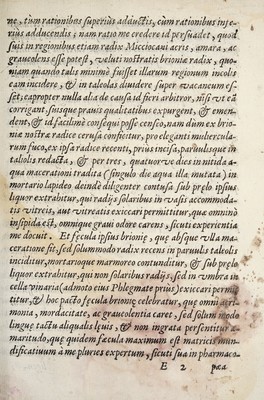 ne, tùm rationibus superiùs adductis, cùm rationibus infe-
riùs adducendis; nam ratio me credere id persuadet, quod
suis in regionibus etiam radix Micciocaui acris, amara, ac
graueolens esse potest, veluti nostratis brioniæ radix, quo-
niam quando talis minimè fuisset illarum regionum incolis
eam incidere, & in taleolas diuidere super vacaneum es-
set; eapropter nulla alia de causa id fieri arbitror, nisi vt eā
corrigant, suisque prauis qualitatibus expurgent, & emen-
dent, & id facilimè consequi posse censeo, nam dùm ex brio-
niæ nostræ radice cerusa conficitur, pro eleganti muliercula-
rum fuco, ex ipsa radice recenti, priùs incisa, paruulisque in
taleolis redacta, & per tres, quatuorve dies in nitida a-
qua macerationi tradita (singulo die aqua illa mutata) in
mortario lapideo deindè diligenter contusa sub prelo ipsius
liquor extrahitur, qui radijs solaribus in vasis accommoda-
tis vitreis, aut vitreatis exiccari permittitur, quæ omninò
insipida est, omnique graui odore carens, sicuti experientia
me docuit. Et fecula ipsius brioniæ, quæ absque vlla ma-
ceratione fit, sed solummodo radix recens in paruulis taleolis
inciditur, mortarioque marmoreo contunditur, & sub prelo
liquor extrahitur, qui non solaribus radijs, sed in vmbra in
cella vinaria (admoto eius Phlegmate priùs) exiccari permit
titur, & hoc pacto fecula brioniæ celebratur, quæ omni acri-
monia, mordacitate, ac graueolentia caret, sed solum modo
linguę tactu aliqualis lęuis, & non ingrata persentitur a-
maritudo, quę quidem fæcula maximum est matricis mun-
dificatiuum a me pluries expertum, sicuti sua in pharmaco-
E 2 pæa